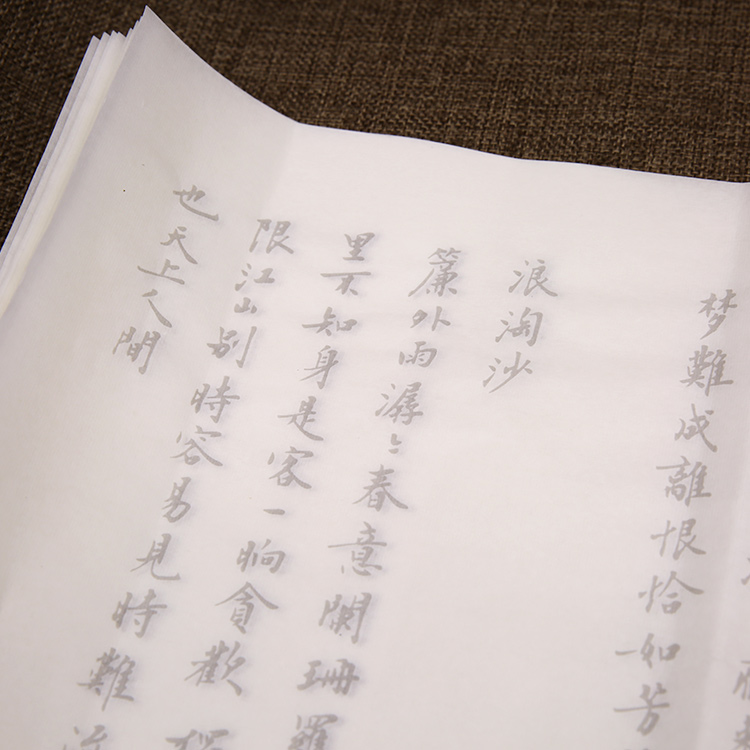 梦難成離恨恰如芳
浪淘沙
簾外雨潺々春意闌珊羅
里不知身是客一晌貪歡
限江山別時容易見時難
也天上人間